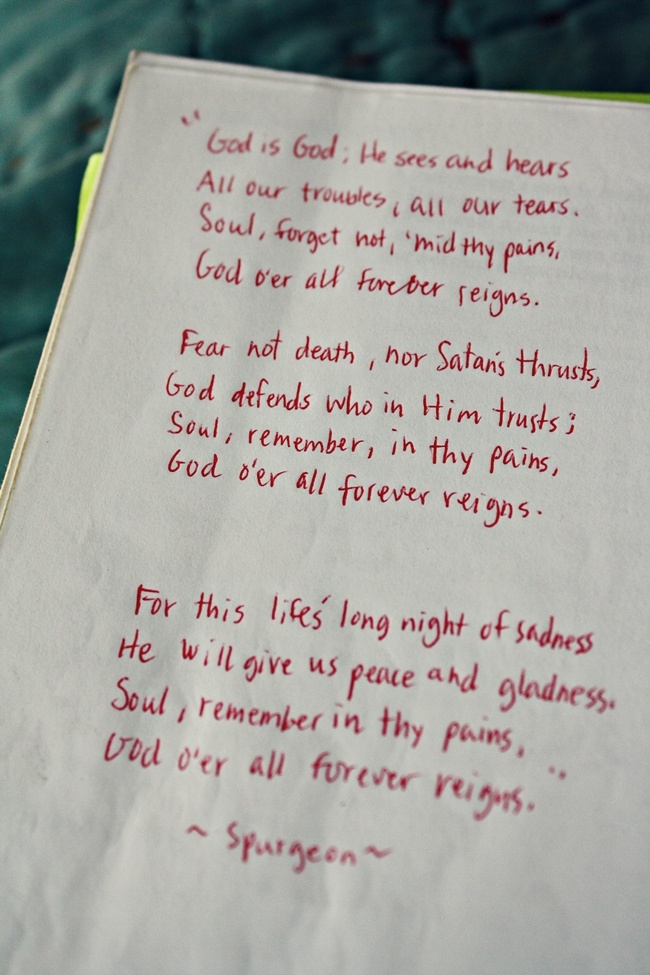 "God is God; He sees and hears
All our troubles, all our tears.
Soul, forget not, 'mid thy pains,
God o'er all forever reigns.
Fear not death, nor Satan's thrusts,
God defends who in Him trusts;
Soul, remember, in thy pains,
God o'er all forever reigns.
For this life's long night of sadness
He will give us peace and gladness.
Soul, remember in thy pains,
God o'er all forever reigns."
~ Spurgeon ~